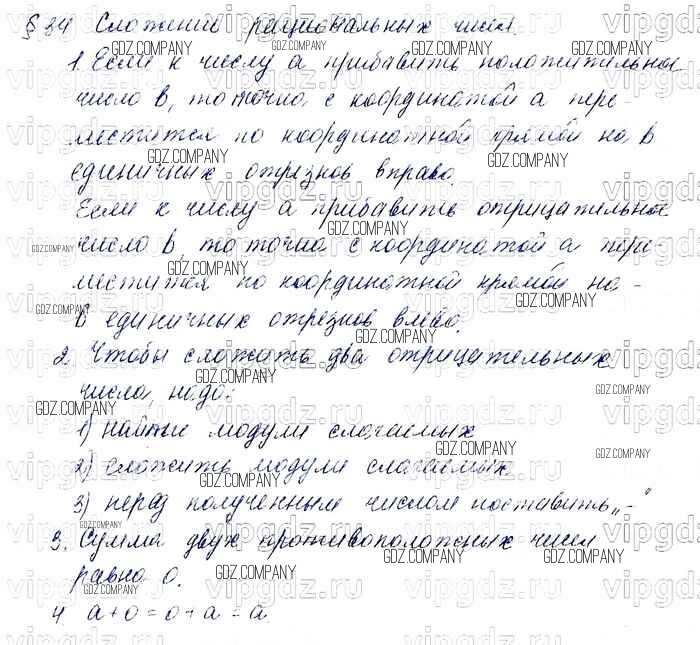 § 34 Сложение рациональных чисел.
1. Если к числу а прибавить положительное
число b, то точка с координатой а пере-
местится по координатной прямой на b
единичных отрезков вправо.
Если к числу а прибавить отрицательное
число b, то точка с координатой а пере-
местится по координатной прямой на -
b единичных отрезков влево.
2. Чтобы сложить два отрицательных
числа, надо:
1) найти модули слагаемых
2) сложить модули слагаемых
3) перед полученным числом поставить „-"
3. Сумма двух противоположных чисел
равна 0.
4 a + 0 = 0 + a = a.
GDZ.COMPANY
vipgdz.ru